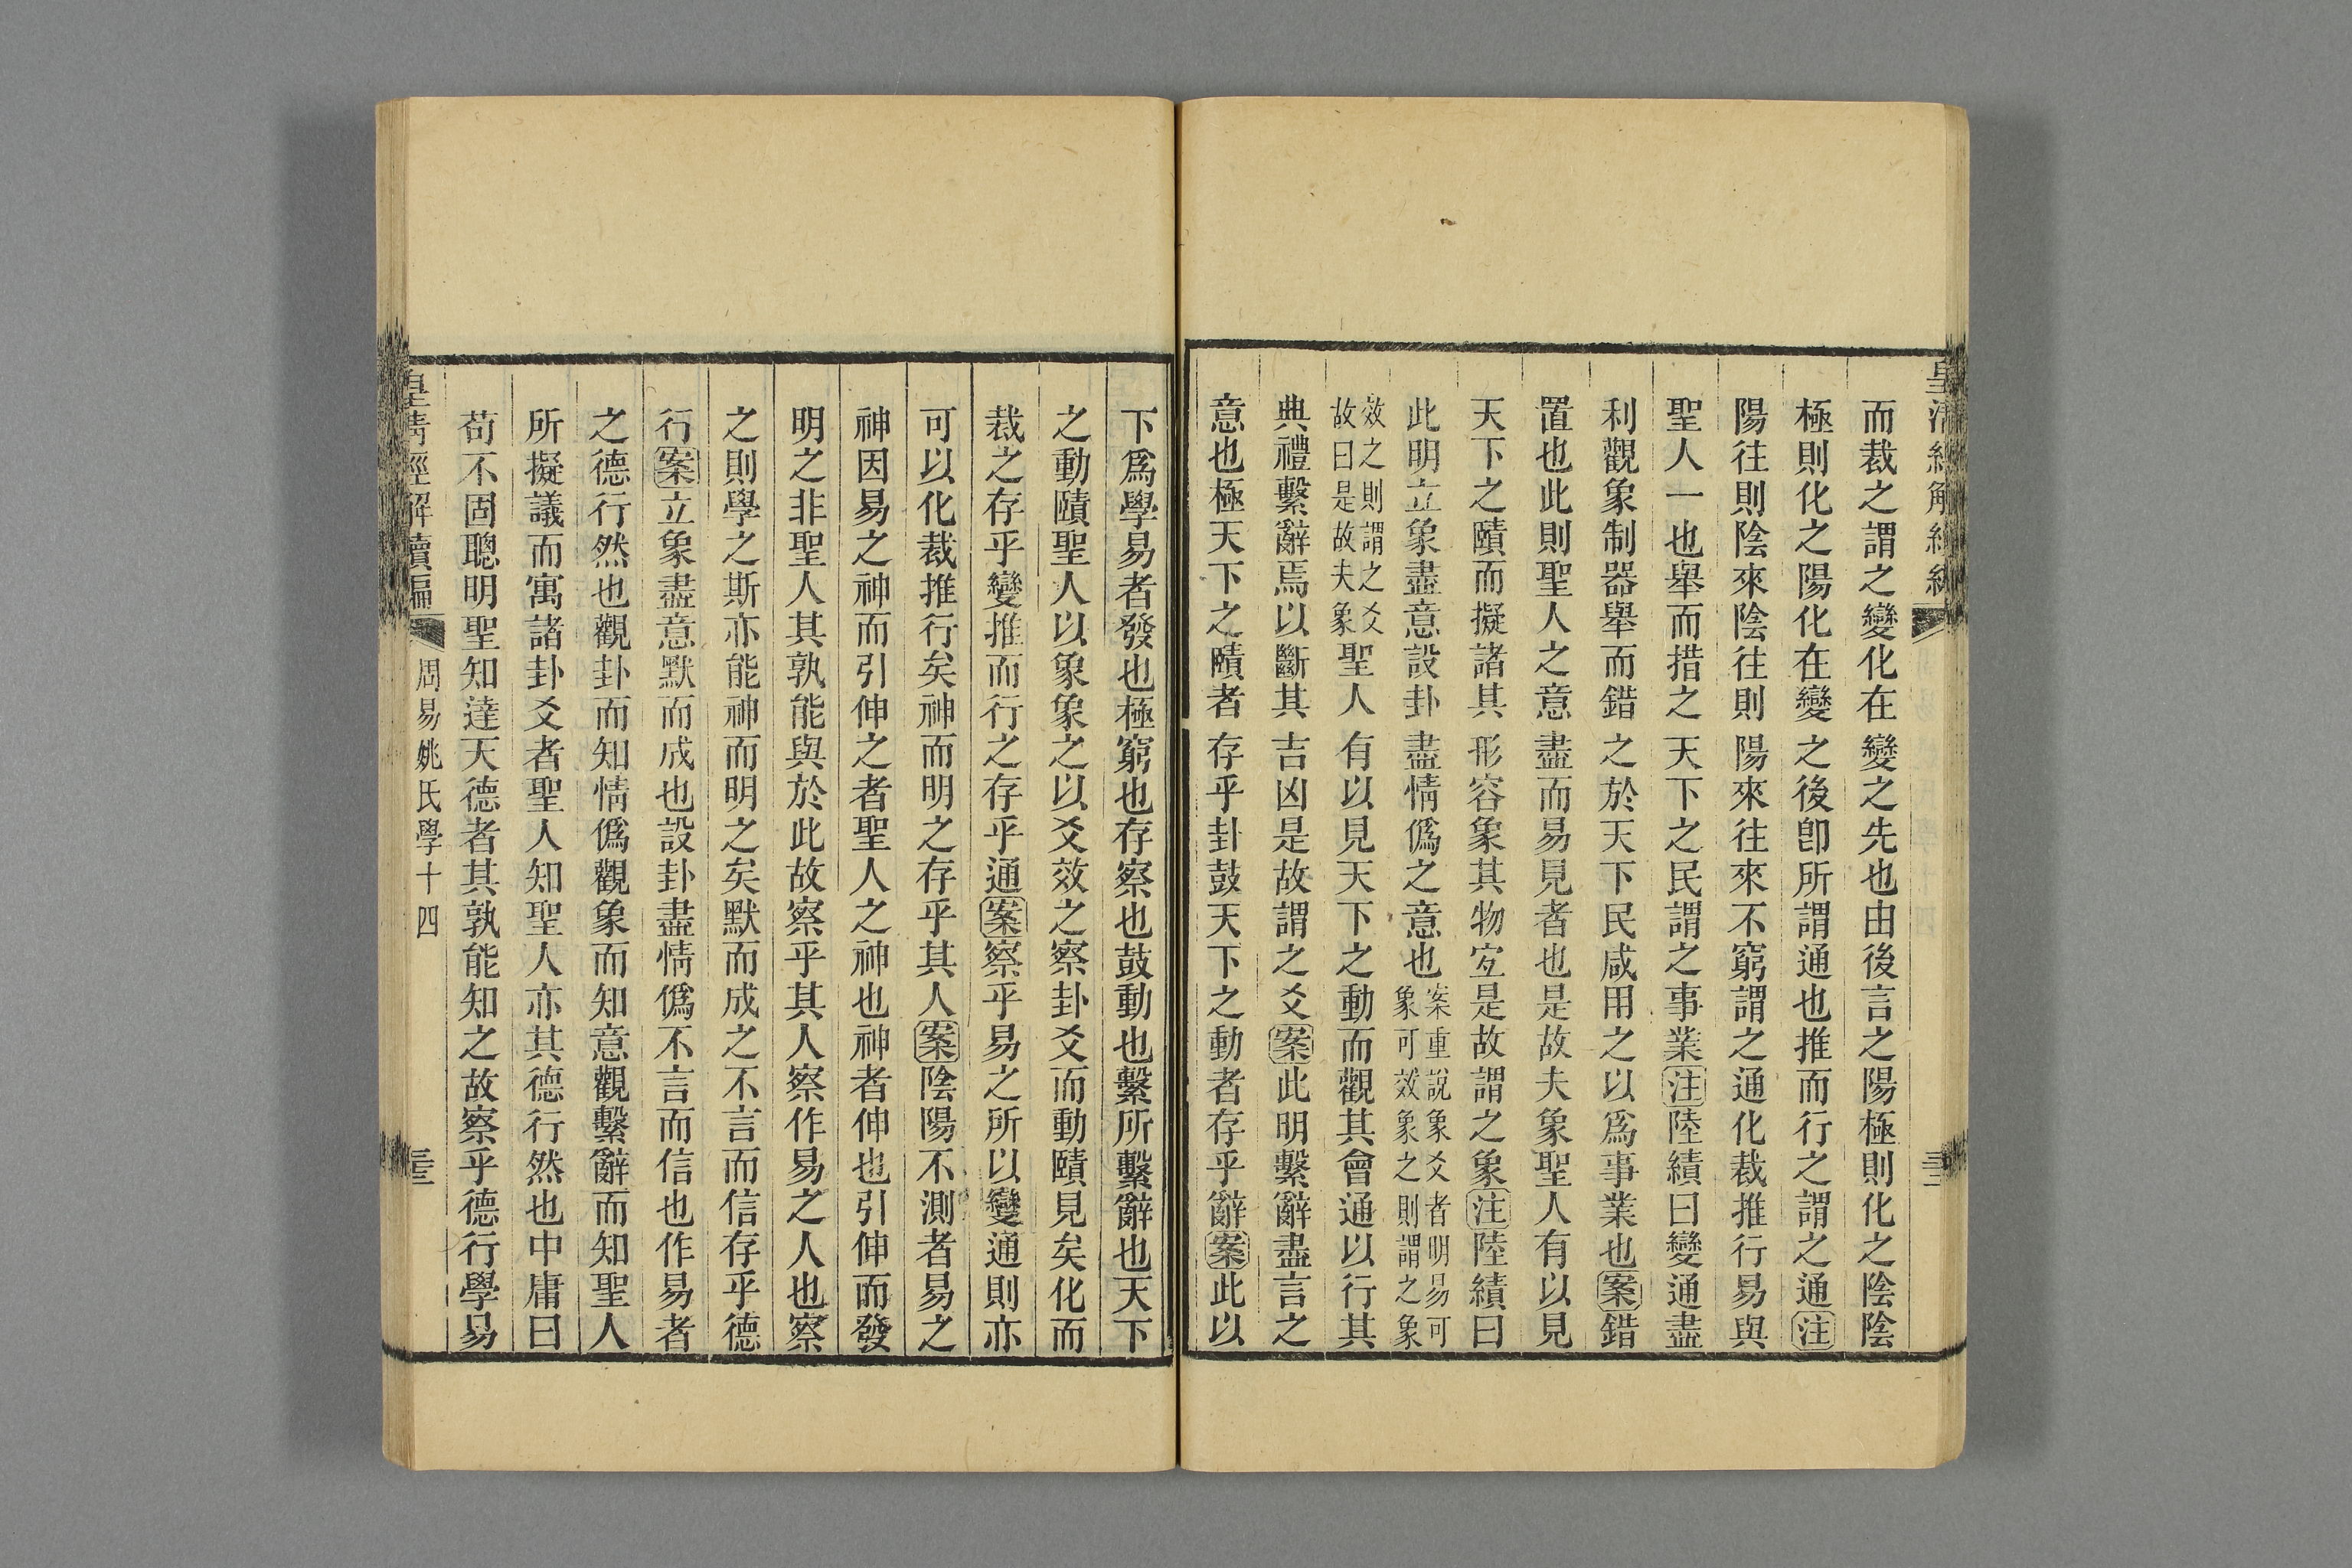 而裁之謂之變化在變之先也由後言之陽極則化之陰陰
極則化之陽化在變之後卽所謂通也推而行之謂之通注
陽往則陰來陰往則陽來往來不窮謂之通化裁推行易與
聖人一也舉而措之天下之民謂之事業注陸績曰變通盡
利觀象制器舉而錯之於天下民咸用之以爲事業也案錯
置也此則聖人之意盡而易見者也是故夫象聖人有以見
天下之賾而擬諸其形容象其物宐是故謂之象注陸績曰
此明立象盡意設卦盡情僞之意也案重說象爻者明易可
象可效象之則謂之象
效之則謂之爻
故曰是故夫象聖人有以見天下之動而觀其會通以行其
典禮繫辭焉以斷其吉凶是故謂之爻案此明繫辭盡言之
意也極天下之賾者存乎卦鼓天下之動者存乎辭案此以
下爲學易者發也極窮也存察也鼓動也繫所繫辭也天下
之動賾聖人以象象之以爻效之察卦爻而動賾見矣化而
裁之存乎變推而行之存乎通案察乎易之所以變通則亦
可以化裁推行矣神而明之存乎其人案陰陽不測者易之
神因易之神而引伸之者聖人之神也神者伸也引伸而發
明之非聖人其孰能與於此故察乎其人察作易之人也察
之則學之斯亦能神而明之矣默而成之不言而信存乎德
行案立象盡意默而成也設卦盡情僞不言而信也作易者
之德行然也觀卦而知情僞觀象而知意觀繫辭而知聖人
所擬議而寓諸卦爻者聖人知聖人亦其德行然也中庸曰
苟不固聰明聖知達天德者其孰能知之故察乎德行學易
皇清經解續編 周易姚氏學十四